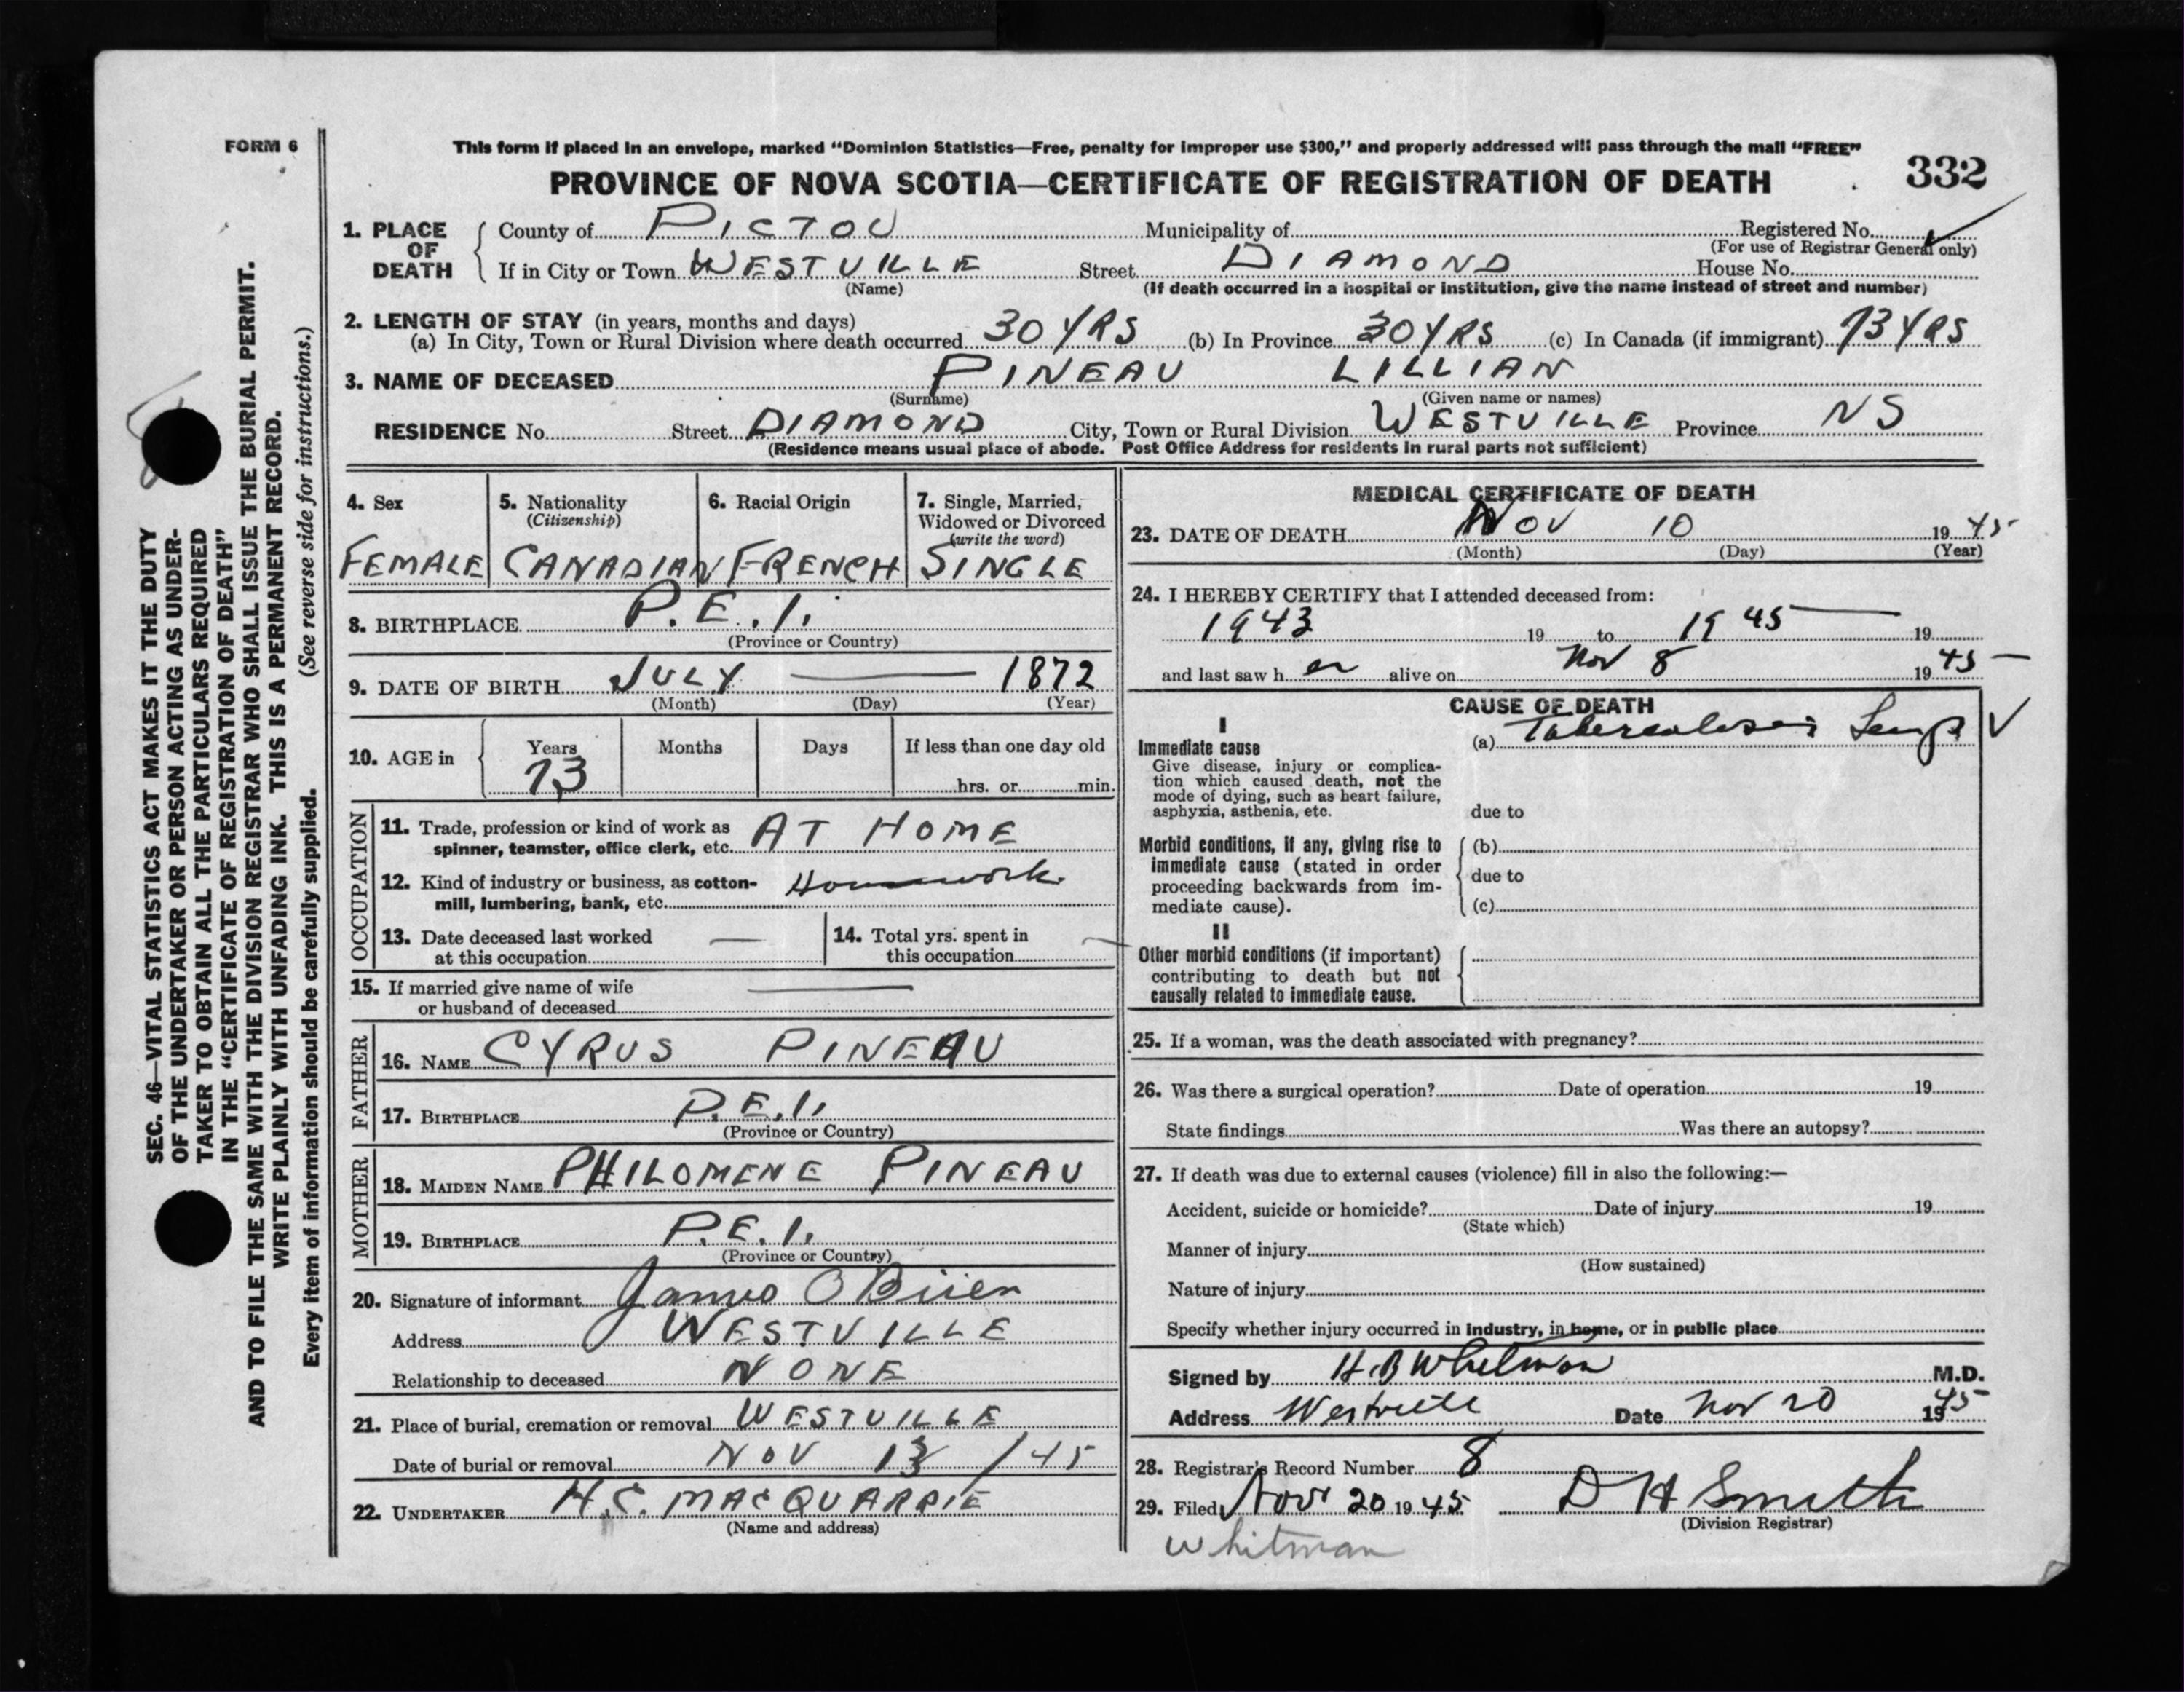 FORM 6
This form if placed in an envelope, marked "Dominion Statistics—Free, penalty for improper use $300," and properly addressed will pass through the mail "FREE"
332
PROVINCE OF NOVA SCOTIA—CERTIFICATE OF REGISTRATION OF DEATH
1. PLACE OF DEATH
County of PICTOU Municipality of Registered No.
(For use of Registrar General only)
If in City or Town WESTVILLE Street DIAMOND House No.
(Name) (If death occurred in a hospital or institution, give the name instead of street and number)
2. LENGTH OF STAY (in years, months and days)
(a) In City, Town or Rural Division where death occurred 30 YRS (b) In Province 30 YRS (c) In Canada (if immigrant) 73 YRS
3. NAME OF DECEASED PINEAU LILLIAN
(Surname) (Given name or names)
RESIDENCE No. Street DIAMOND City, Town or Rural Division WESTVILLE Province NS
(Residence means usual place of abode. Post Office Address for residents in rural parts not sufficient)
4. Sex
FEMALE
5. Nationality
(Citizenship)
CANADIAN
6. Racial Origin
FRENCH
7. Single, Married,
Widowed or Divorced
(write the word)
SINGLE
8. BIRTHPLACE P.E.I.
(Province or Country)
9. DATE OF BIRTH JULY — 1872
(Month) (Day) (Year)
10. AGE in
Years Months Days If less than one day old
73 hrs. or min.
OCCUPATION
11. Trade, profession or kind of work as
spinner, teamster, office clerk, etc. AT HOME
12. Kind of industry or business, as cotton-
mill, lumbering, bank, etc. Housework
13. Date deceased last worked
at this occupation —
14. Total yrs. spent in
this occupation —
15. If married give name of wife
or husband of deceased —
FATHER
16. NAME CYRUS PINEAU
17. BIRTHPLACE P.E.I.
(Province or Country)
MOTHER
18. MAIDEN NAME PHILOMENE PINEAU
19. BIRTHPLACE P.E.I.
(Province or Country)
20. Signature of informant James O Brien
Address WESTVILLE
Relationship to deceased NONE
21. Place of burial, cremation or removal WESTVILLE
Date of burial or removal NOV 13 / 45
22. UNDERTAKER H.C. MACQUARRIE
(Name and address)
MEDICAL CERTIFICATE OF DEATH
23. DATE OF DEATH NOV 10 1945
(Month) (Day) (Year)
24. I HEREBY CERTIFY that I attended deceased from:
1943 19 to 1945 — 19
and last saw her alive on Nov 8 1945 —
CAUSE OF DEATH
I
Immediate cause
Give disease, injury or complica-
tion which caused death, not the
mode of dying, such as heart failure,
asphyxia, asthenia, etc.
(a) Tuberculosis Lungs
due to
Morbid conditions, if any, giving rise to
immediate cause (stated in order
proceeding backwards from im-
mediate cause).
(b)
due to
(c)
II
Other morbid conditions (if important)
contributing to death but not
causally related to immediate cause.
25. If a woman, was the death associated with pregnancy?
26. Was there a surgical operation? Date of operation 19
State findings Was there an autopsy?
27. If death was due to external causes (violence) fill in also the following:—
Accident, suicide or homicide? Date of injury 19
(State which)
Manner of injury
(How sustained)
Nature of injury
Specify whether injury occurred in industry, in home, or in public place
Signed by H.B Whitman M.D.
Address Westville Date Nov 20 1945
28. Registrar's Record Number 8
29. Filed Nov 20 1945 D H Smith
(Division Registrar)
Whitman
SEC. 46—VITAL STATISTICS ACT MAKES IT THE DUTY
OF THE UNDERTAKER OR PERSON ACTING AS UNDER-
TAKER TO OBTAIN ALL THE PARTICULARS REQUIRED
IN THE "CERTIFICATE OF REGISTRATION OF DEATH"
AND TO FILE THE SAME WITH THE DIVISION REGISTRAR WHO SHALL ISSUE THE BURIAL PERMIT.
WRITE PLAINLY WITH UNFADING INK. THIS IS A PERMANENT RECORD.
Every item of information should be carefully supplied. (See reverse side for instructions.)